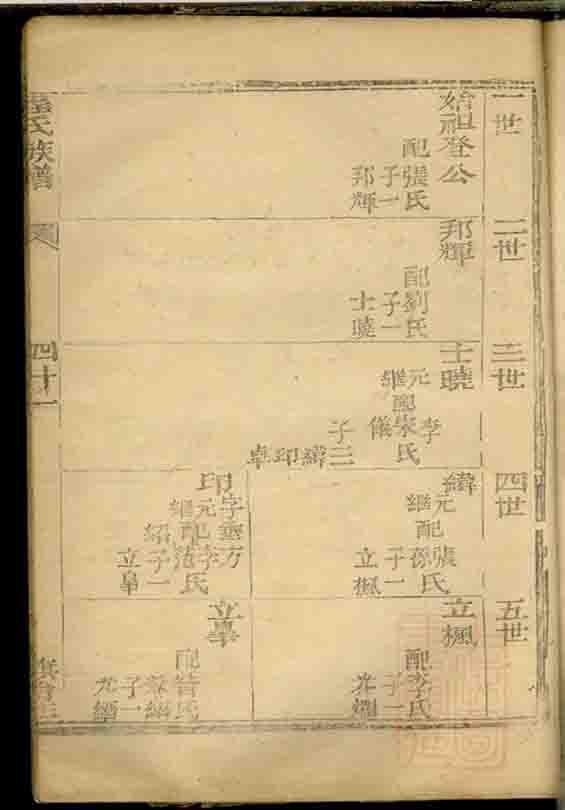 一世
始祖登公
配張氏
子一
邦輝
二世
邦輝
配劉氏
子一
士曉
三世
士曉
元配李氏
繼宋氏
子三
緯印卓
四世
緯
元配張氏
繼孫氏
子一
立楓
印
字垂方
元配李氏
繼范氏
子一
立皐
五世
立楓
配李氏
子一
立皐
子一
氏族譜
四十一